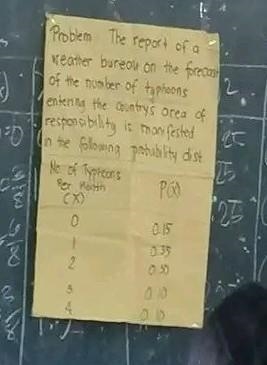 Problem The report of a
weather bureau on the forecast
of the number of typhoons
entering the countrys area of
responsibility is manifested
in the following probability dist
No. of Typhoons
Per Month
(X) P(X)
0 0.15
1 0.35
2 0.30
3 0.10
4 0.10